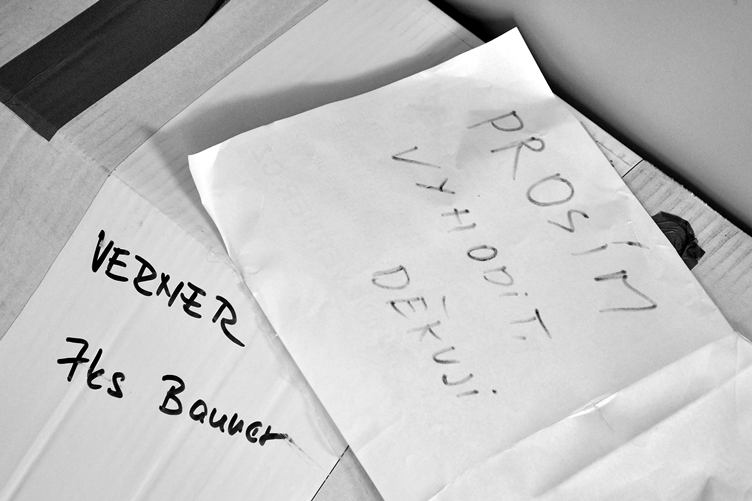 PROSÍM
VYHODIT,
DĚKUJI
VERNER
7ks Banner